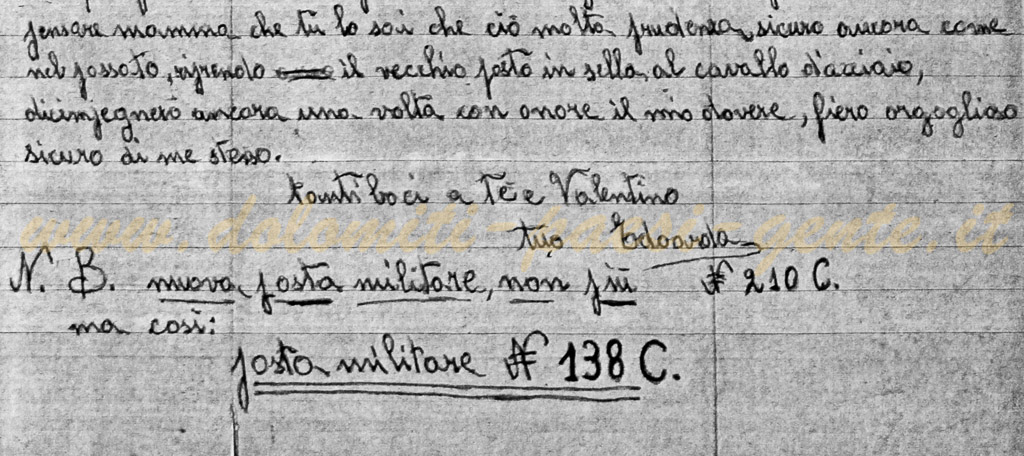 pensare mamma che tu lo sai che ciò molta prudenza, sicuro ancora come
nel passato, riprendo il vecchio posto in sella, al cavallo d'acciaio,
disimpegnerò ancora una volta con onore il mio dovere, fiero orgoglioso
sicuro di me stesso.
tanti baci a Te e Valentino
tuo Edoardo
N. B. nuova posta militare, non più N 210 C.
ma così:
posta militare N 138 C.
www.dolomiti-
gente.it